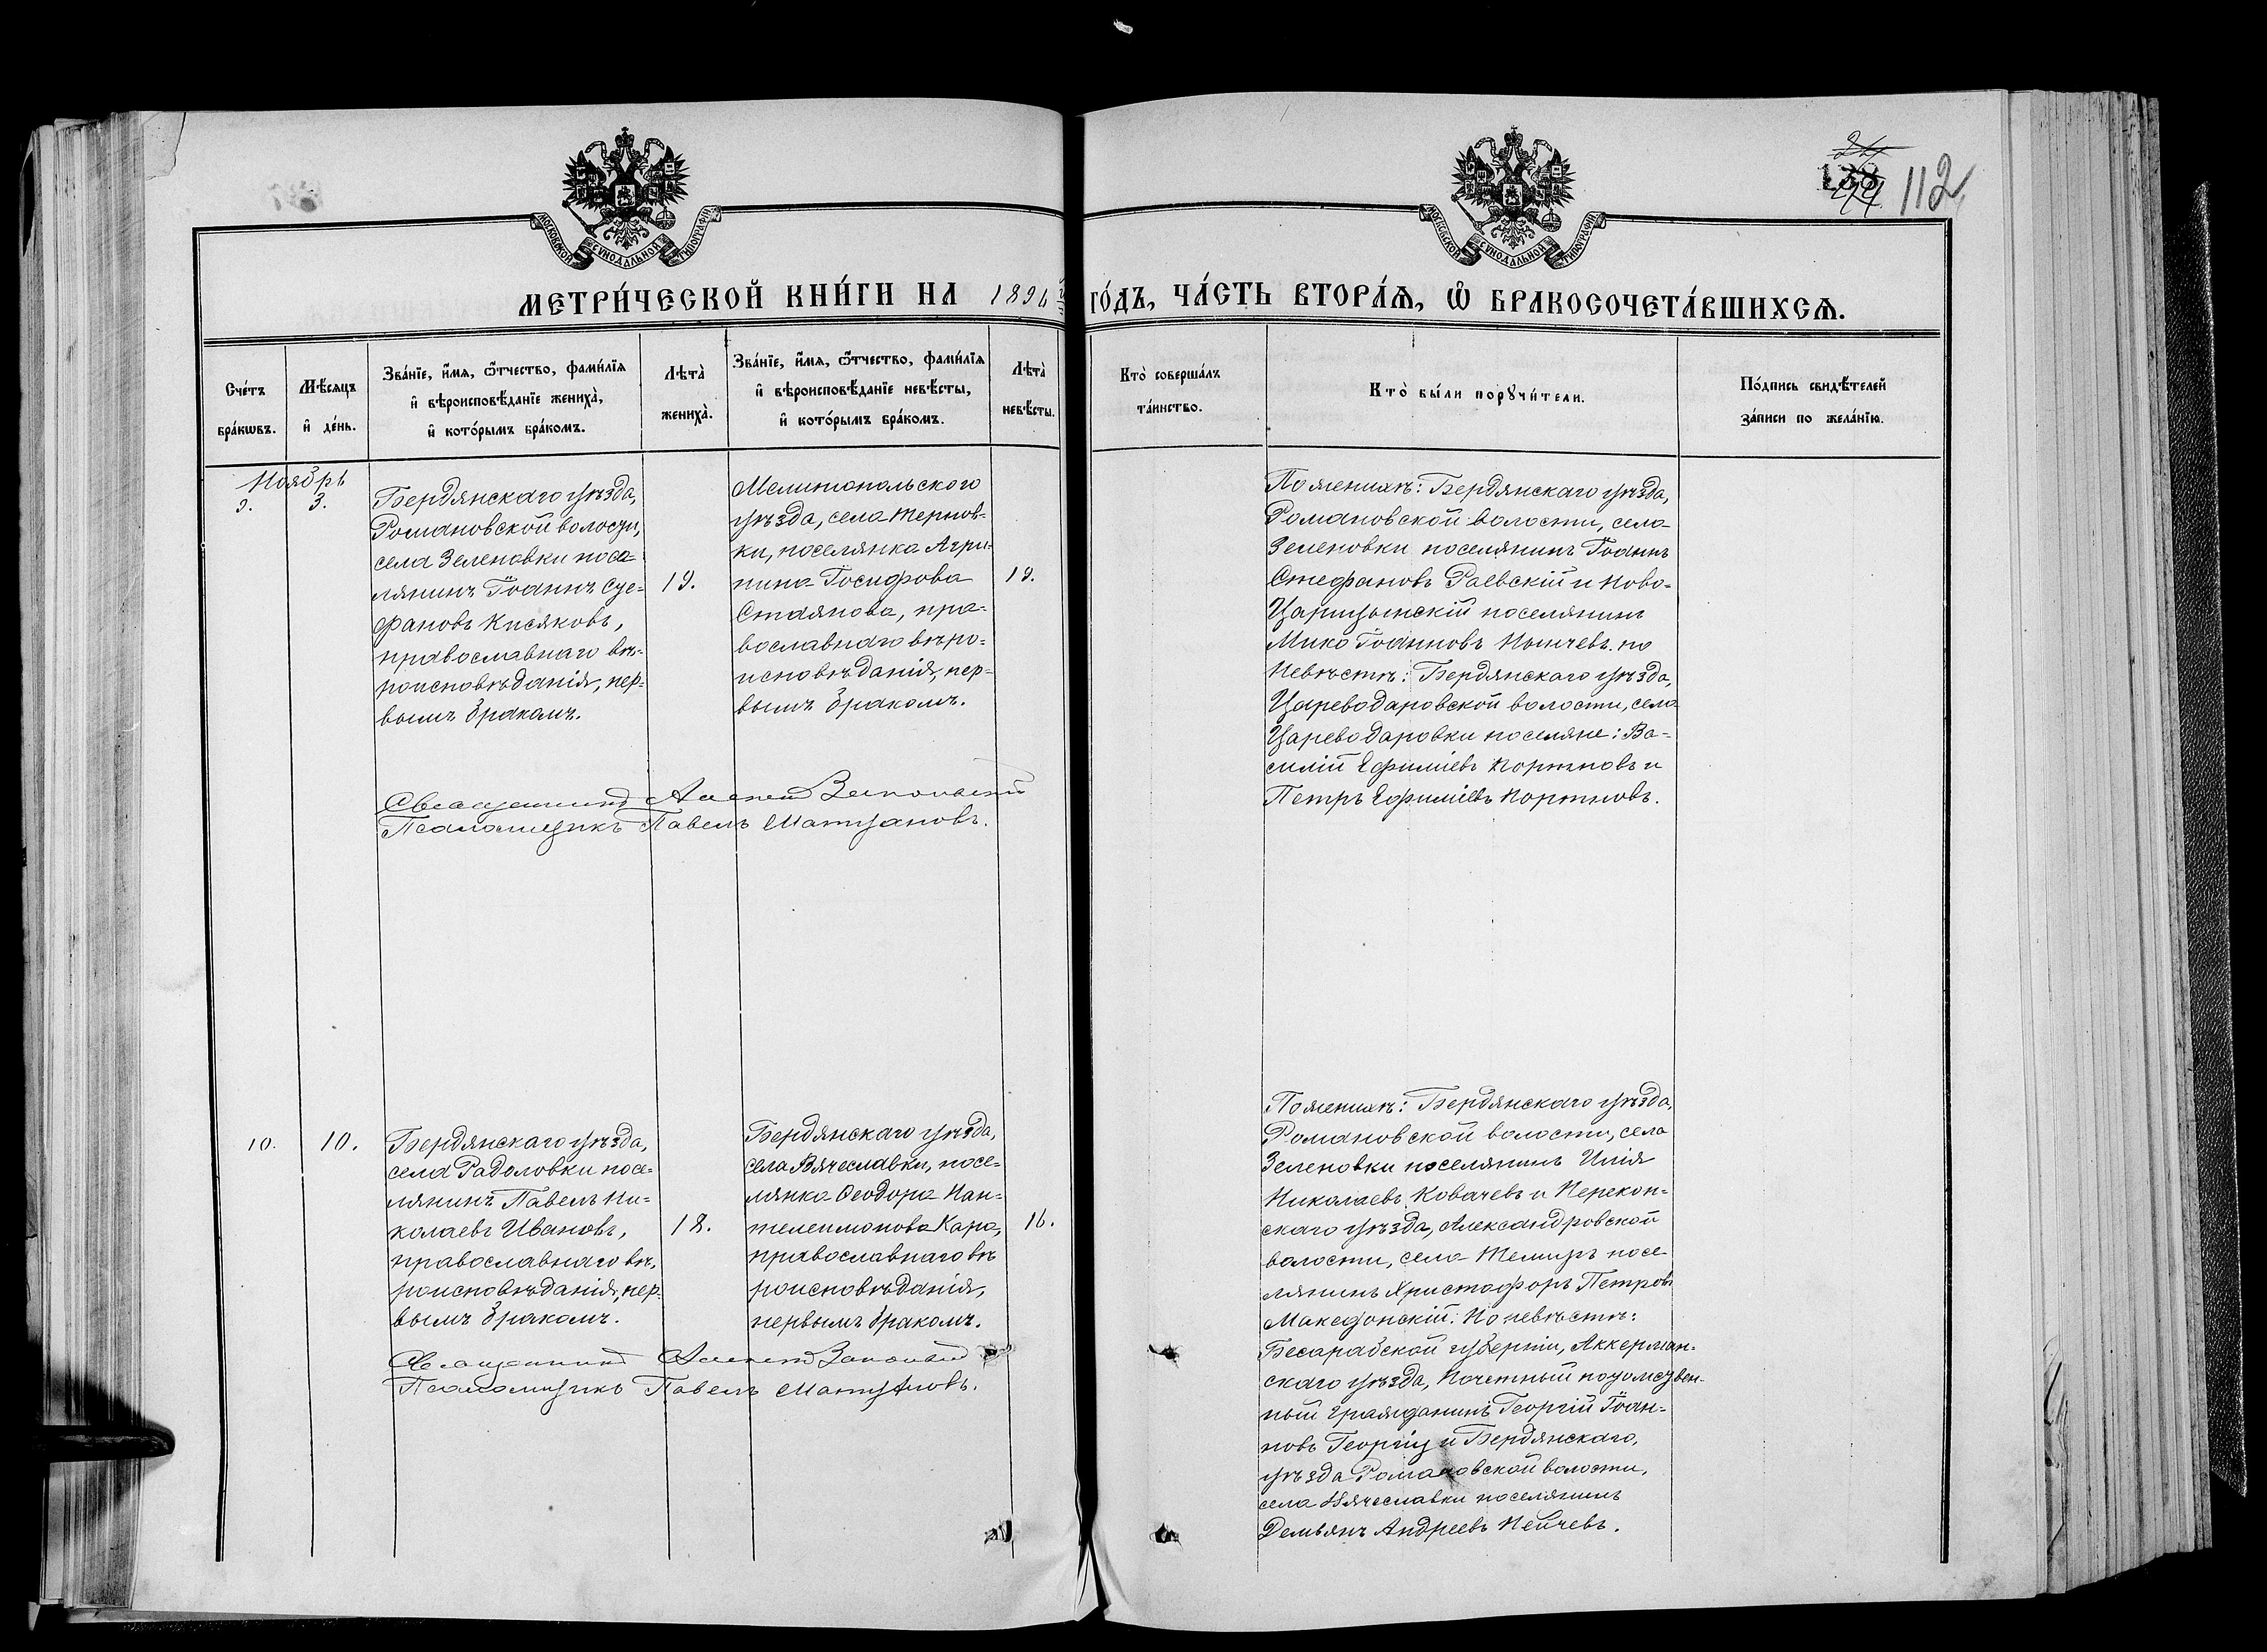 112
МОСКОВСКОЙ СѴНОДАЛЬНОЙ ТИПОГРАФІИ
МОСКОВСКОЙ СѴНОДАЛЬНОЙ ТИПОГРАФІИ
МЕТРИ́ЧЕСКОЙ КНИ́ГИ НА 1896 ГО́ДЪ, ЧА́СТЬ ВТОРА́Ѧ, Ѽ БРАКОСОЧЕТА́ВШИХСѦ.
Сче́тъ
бра́кѡвъ.
Мѣ́сѧцъ
и҆ де́нь.
Зва́нїе, и҆́мѧ, ѻ҆́тчество, фами́лїѧ
и҆ вѣроисповѣ́данїе жениха̀,
и҆ кото́рымъ бра́комъ.
Лѣта̀
жениха̀.
Зва́нїе, и҆́мѧ, ѻ҆́тчество, фами́лїѧ
и҆ вѣроисповѣ́данїе невѣ́сты,
и҆ кото́рымъ бра́комъ.
Лѣта̀
невѣ́сты.
Кто̀ соверша́лъ
та́инство.
Кто̀ бы́ли порꙋчи́тели.
По́дпись свидѣ́телей
за́писи по жела́нїю.
Ноябрь
9.
3.
Бердянскаго уѣзда,
Романовской волости,
села Зеленовки посе-
лянинъ Іоаннъ Сте-
фановъ Кисяковъ,
православнаго вѣ-
роисповѣданія, пер-
вымъ бракомъ.
19.
Мелитопольского
уѣзда, села Тернов-
ки, поселянка Агри-
пина Іосифова
Стоянова, пра-
вославнаго вѣро-
исповѣданія, пер-
вымъ бракомъ.
19.
Священникъ
Псаломщикъ Павелъ
По женихѣ: Бердянскаго уѣзда,
Романовской волости, села
Зеленовки поселянинъ Іоаннъ
Стефановъ Раевскій и Ново-
Царицынскій поселянинъ
Мико Іоанновъ по
Невѣстѣ: Бердянскаго уѣзда,
Цареводаровской волости, села
Цареводаровки поселяне: Ва-
силій Ефиміевъ Портновъ и
Петръ Ефиміевъ Портновъ.
10.
10.
Бердянскаго уѣзда,
села Радоловки посе-
лянинъ Павелъ Ни-
колаевъ Ивановъ,
православнаго вѣ-
роисповѣданія, пер-
вымъ бракомъ.
18.
Бердянскаго уѣзда,
села Вячеславки, посе-
лянка Ѳеодора Пан-
телеимонова Кара,
православнаго вѣ
роисповѣданія,
первымъ бракомъ.
16.
Священникъ
Псаломщикъ Павелъ
По женихѣ: Бердянскаго уѣзда,
Романовской волости, села
Зеленовки поселянинъ Илія
Николаевъ Ковачевъ и Перекоп-
скаго уѣзда, Александровской
волости, села посе-
лянинъ Христофоръ Петровъ
Македонскій. По невѣстѣ:
Бесарабской губерніи, Аккерман-
скаго уѣзда, Почетный потомствен-
ный гражданинъ Георгій Іоан-
новъ Георгіу и Бердянскаго,
уѣзда Романовской волости,
села Вячеславки поселянинъ
Демьянъ Андреевъ Нейчевъ.